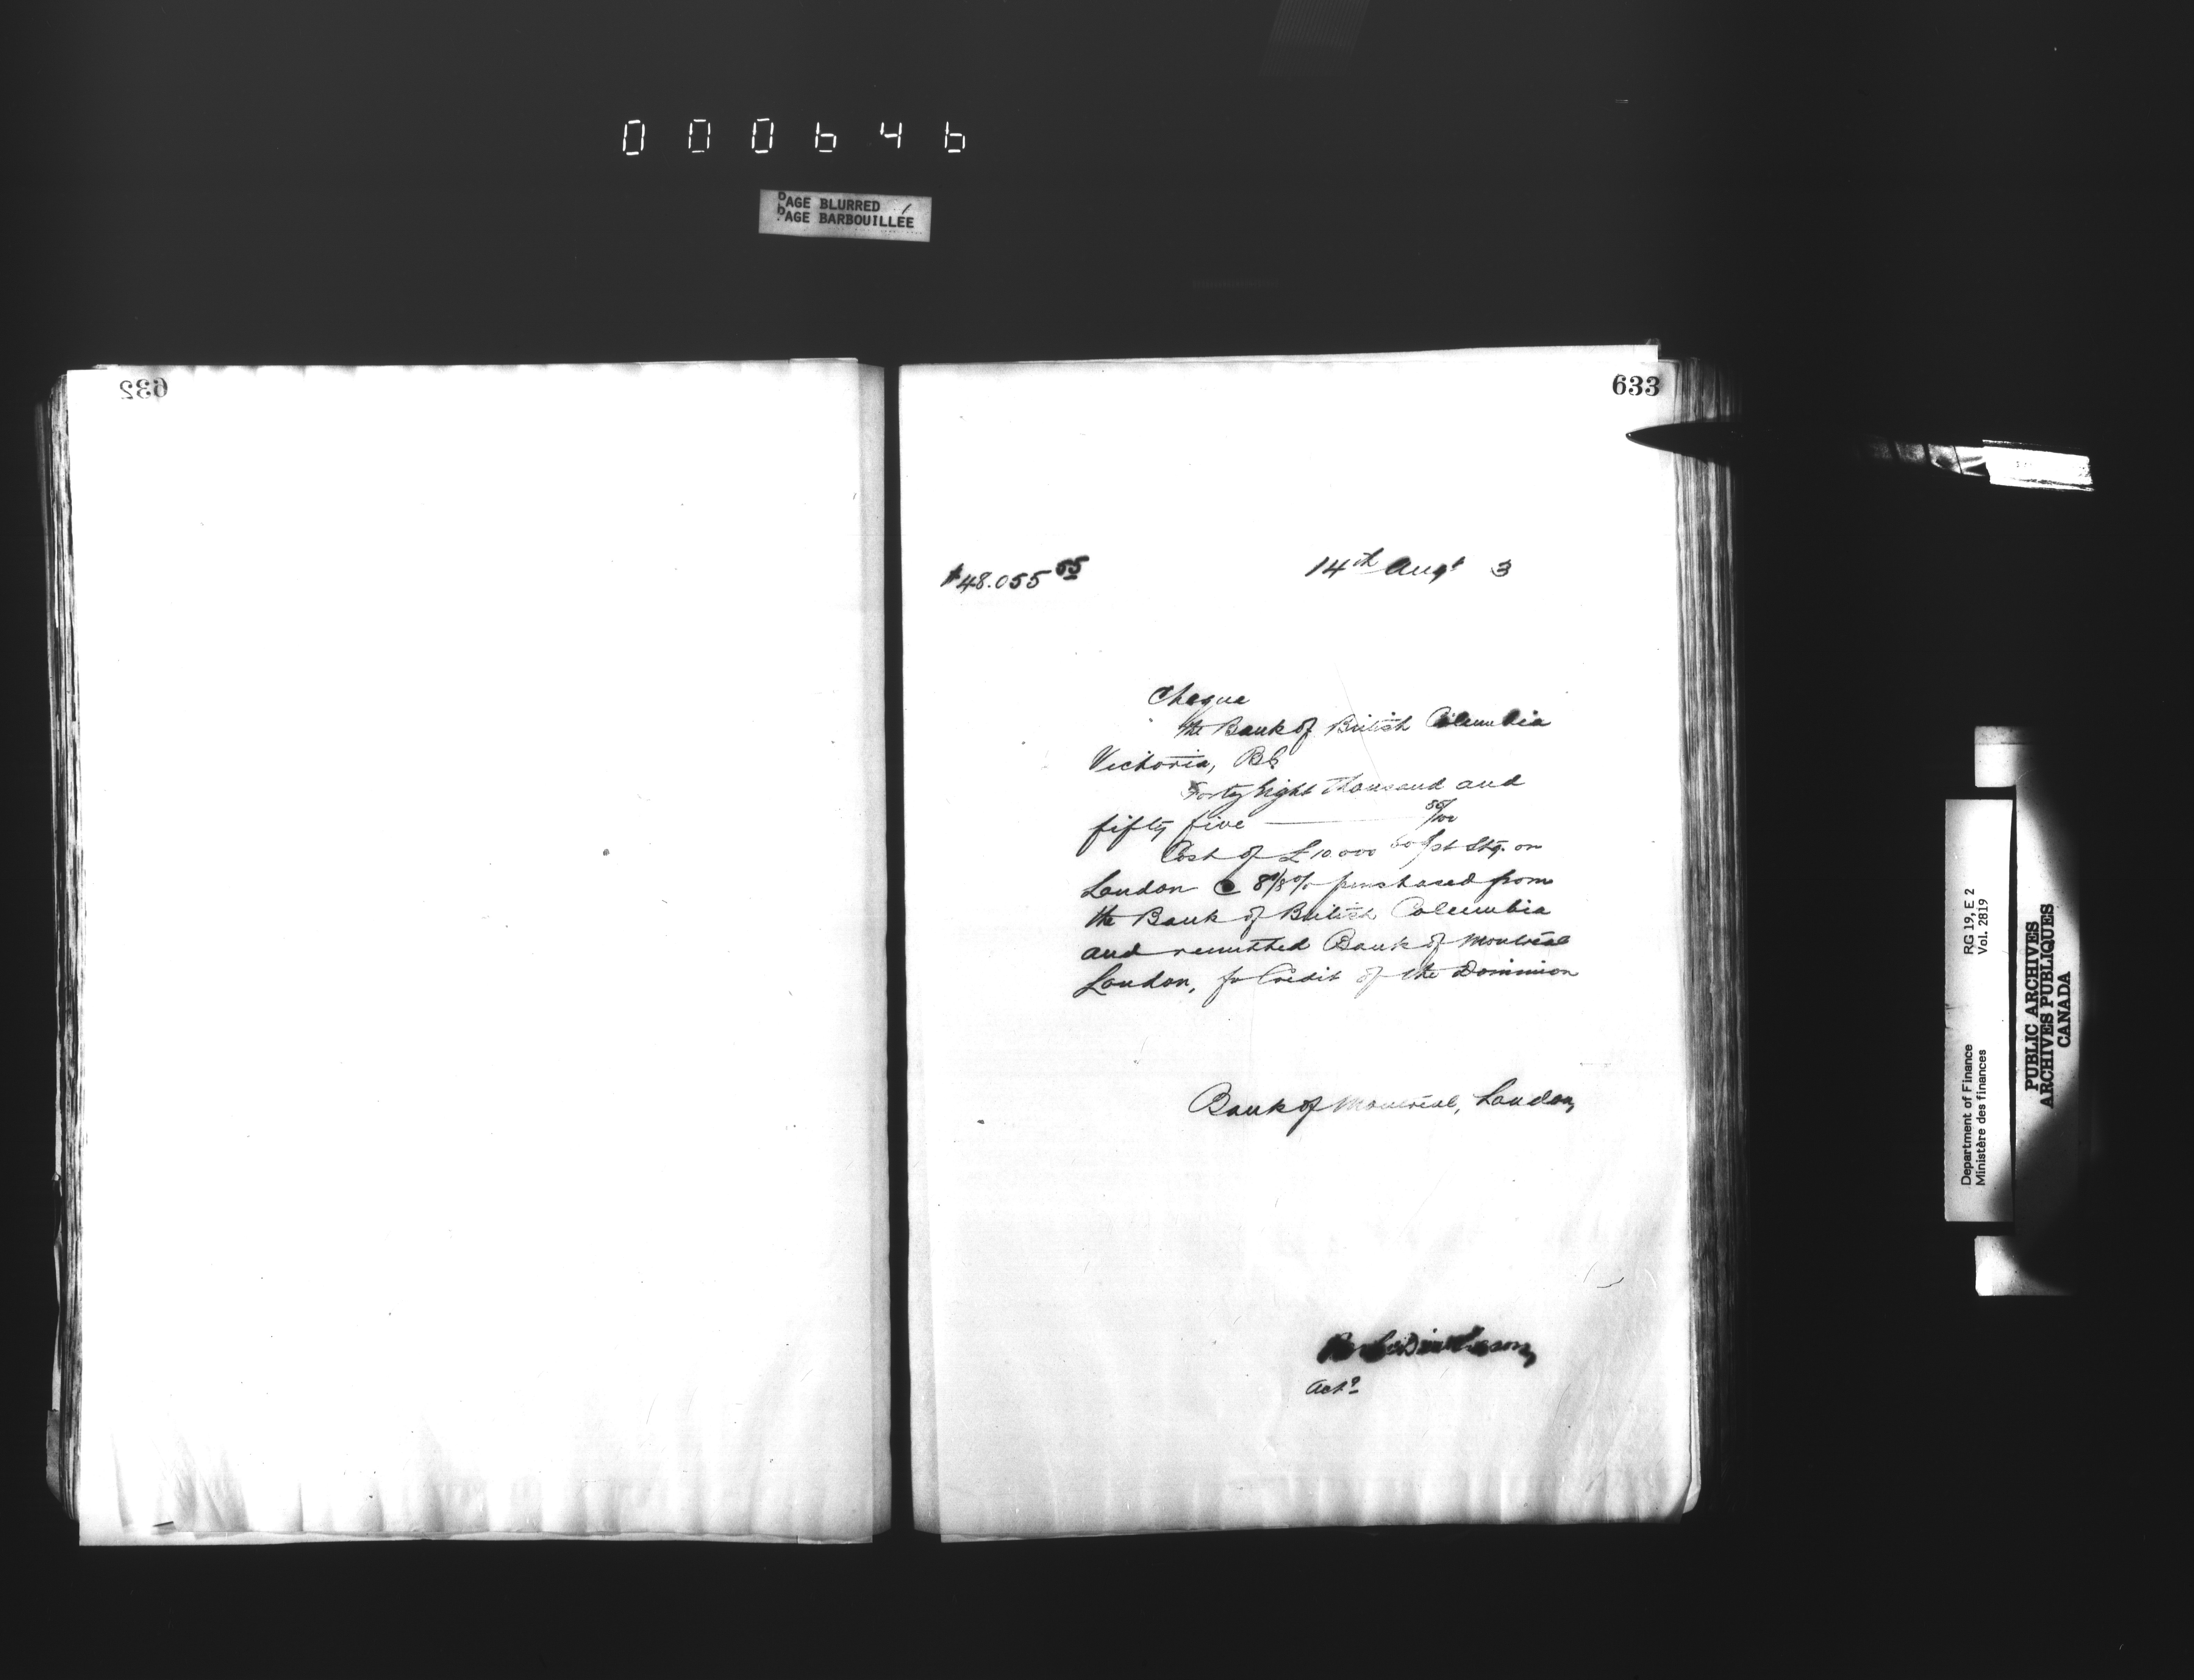 000646
PAGE BLURRED
PAGE BARBOUILLÉE
632
633
$48.055 55
14th Augt 3
Cheque
the Bank of British Columbia
Victoria, BC
Forty Eight thousand and
fifty five — 55/100
Cost of £10.000 Stg. on
London @ 8 1/8 % purchased from
the Bank of British Columbia
and remitted Bank of Montreal
London, for Credit of the Dominion
Bank of Montreal, London,
RG 19, E 2
Vol. 2819
Department of Finance
Ministère des finances
PUBLIC ARCHIVES
ARCHIVES PUBLIQUES
CANADA